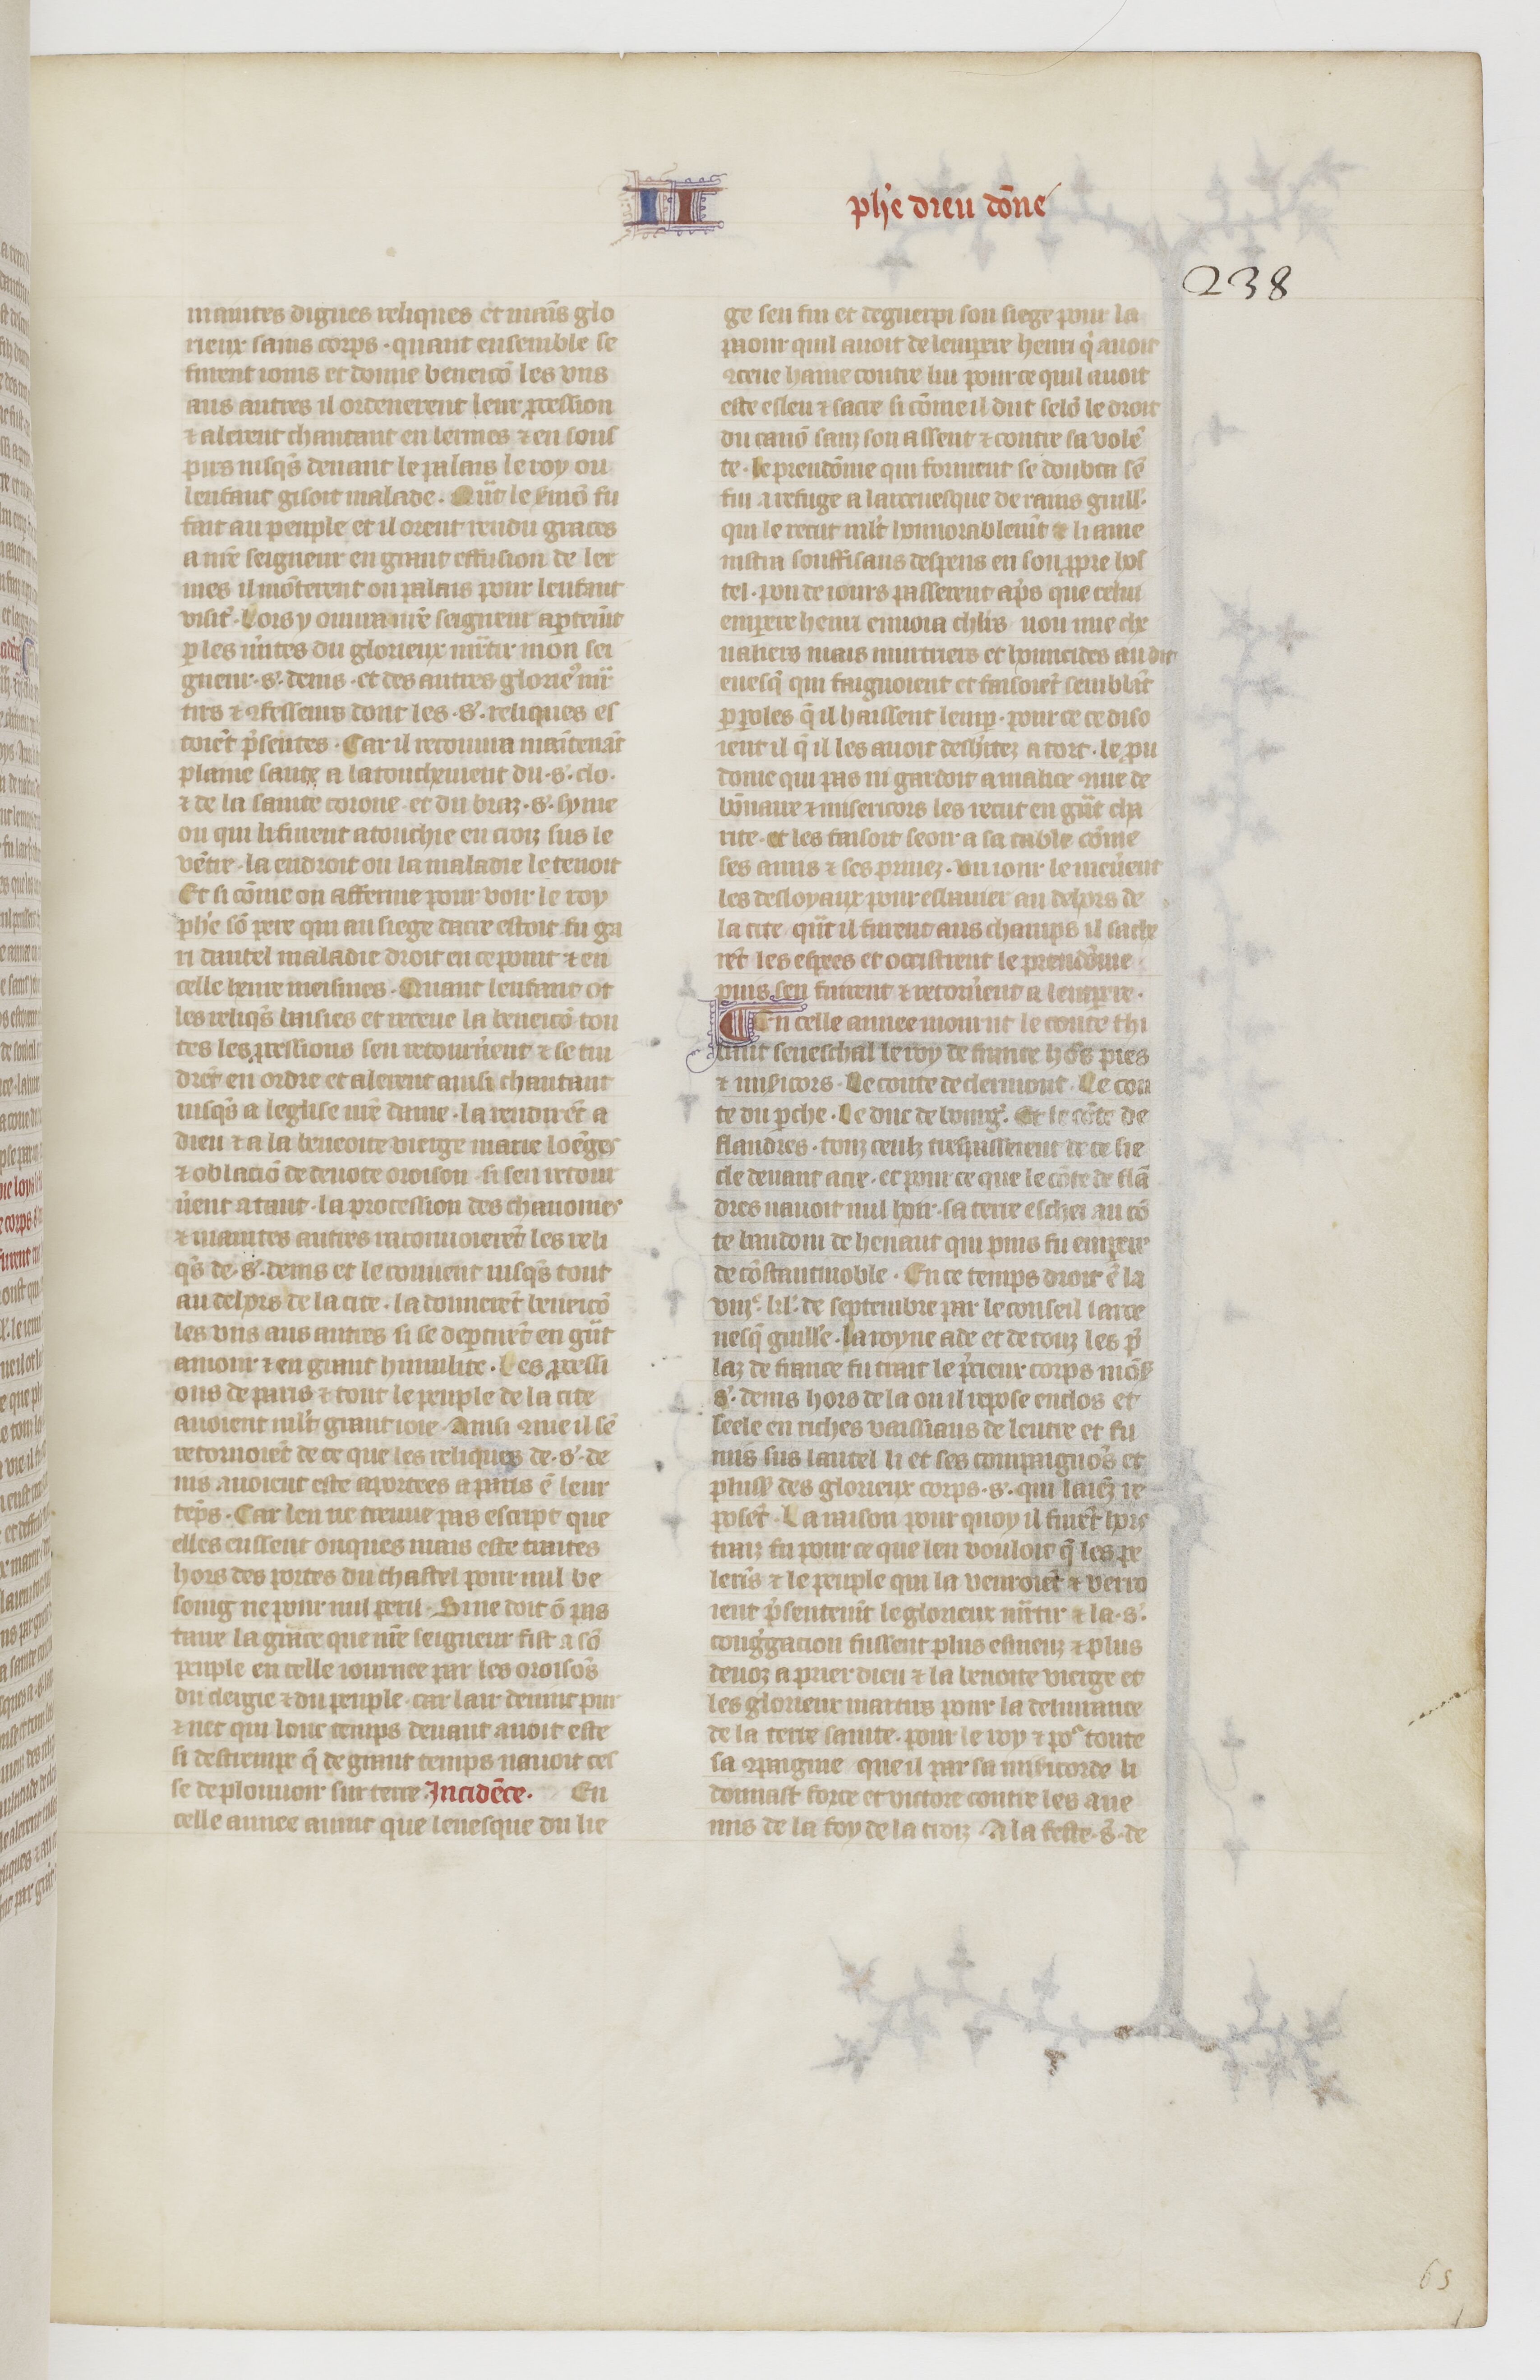 II
phe dieu done
238
maintes dignes reliques et mains glo
rieux sains corps · quant ensemble se
furent ioins et donne beneico les vns
aus autres il ordenerent leur pcession
⁊ alerent chantant en lermes ⁊ en sous
pirs iusqs deuant le palais le roy ou
lenfant gisoit malade · Qnt le smo fu
fait au peuple et il orent rendu graces
a nre seigneur en grant effusion de ler
mes il monterent ou palais pour lenfant
visit · Lors y ouura nre seigneur aptemt
p les mites du glorieux mtir mon sei
gneur · s · denis · et des autres glorie mr
tirs ⁊ 9fesseurs dont les · s · reliques es
toiet psentes · Car il recouura maintenat
plaine sante a latouchement du · s · clo ·
⁊ de la sainte corone et du braz · s · syme
on qui li furent atouchie en croiz sus le
ventre · la endroit ou la maladie le tenoit
Et si come on afferme pour voir le roy
phe so pere qui au siege dacre estoit fu ga
ri dautel maladie droit en ce point ⁊ en
celle heure meismes · Quant lenfant ot
les reliqs baisies et receue la beneico tou
tes les pcessions sen retournent ⁊ se tin
dret en ordre et alerent ainsi chantant
iusqs a leglise nre dame · la rendiret a
dieu ⁊ a la beneoite vierge marie loenges
⁊ oblacio de deuote oroison si sen retour
nent atant · la procession des chanoines
⁊ maintes autres raconuoieret les reli
qs de · s · denis et le couuent iusqs tout
au dehors de la cite · la donneret beneico
les vns aus autres si se deptiret en gnt
amour ⁊ en grant humilite · Les pcessi
ons de paris ⁊ tout le peuple de la cite
auoient mlt grant ioie · Ainsi 9me il se
retornoiet de ce que les reliques de · s · de
nis auoient este aportees a paris e leur
teps · Car len ne treuue pas escript que
elles eussent onques mais este traites
hors des portes du chastel pour nul be
soing ne pour nul peril · Si ne doit o pas
taire la grace que nre seigneur fist a so
peuple en celle iournee par les oroisos
du clergie ⁊ du peuple · car lair deuint pur
⁊ net qui lonc temps deuant auoit este
si destrempe q de grant temps nauoit ces
se de plouuoir sur terre Incidece · En
celle annee auint que leuesque du lie
ge sen fui et deguerpi son siege pour la
paour quil auoit de lempere henri q auoit
9ceue haine contre lui pource quil auoit
este esleu ⁊ sacre si come il dut selo le droit
du cano sanz son assent ⁊ contre sa vole
te · le preudome qui forment se doubta se
fui a refuge a larceuesque de rains guill
qui le recut mlt honnorablemt ⁊ li ame
nistra souffisans despens en son ppre hos
tel · pou de iours passerent aps que celui
empere henri enuoia chlrs non mie che
ualiers mais murtriers et homicides au dit
euesq qui faignoient et faisoiet semblat
p proles q il haissent lemp · pour ce ce diso
ient il q il les auoit desh'itez a tort · le pu
dome qui pas ni gardoit a malice 9me de
bonnaire ⁊ misericors les recut en gnt cha
rite · et les faisoit seoir a sa table come
ses amis ⁊ ses priuez · vn iour le menent
les desloyaux pour esbanier au dehors de
la cite qnt il furent aus champs il sache
ret les espees et occistrent le preudome
puis sen fuirent ⁊ retornent a lempere ·
En celle annee mourut le conte thi
baut seneschal le roy de france hos pies
⁊ misicors · Le conte de clermont · Le con
te du pche · Le duc de bourg · Et le cote de
flandres · touz ceulz trespasserent de ce sie
cle deuant acre · et pour ce que le cote de fla
dres nauoit nul hoir · sa terre eschei au co
te baudoin de henaut qui puis fu empere
de costantinoble · En ce temps droit e la
viii · kl · de septembre par le conseil larce
uesq guille · la royne ade et de touz les p
laz de france fu trait le pcieux corps mos
s · denis hors de la ou il repose enclos et
seele en riches vaissiaus de leutre et fu
mis sus lautel li et ses compaignos et
pluss des glorieux corps · s · qui laiez re
poset · La raison pour quoy il furet hors
traiz fu pour ce que len vouloit q les pe
lerins ⁊ le peuple qui la venroiet ⁊ verro
ient psentemt le glorieux mtir ⁊ la · s ·
congrgacion fussent plus esmeuz ⁊ plus
deuoz a prier dieu ⁊ la benoite vierge et
les glorieux martirs pour la deliurance
de la terre sainte · pour le roy ⁊ po toute
sa 9paignie que il par sa misicorde li
donnast force et victore contre les ane
mis de la foy de la croiz · A la feste · s · de
65